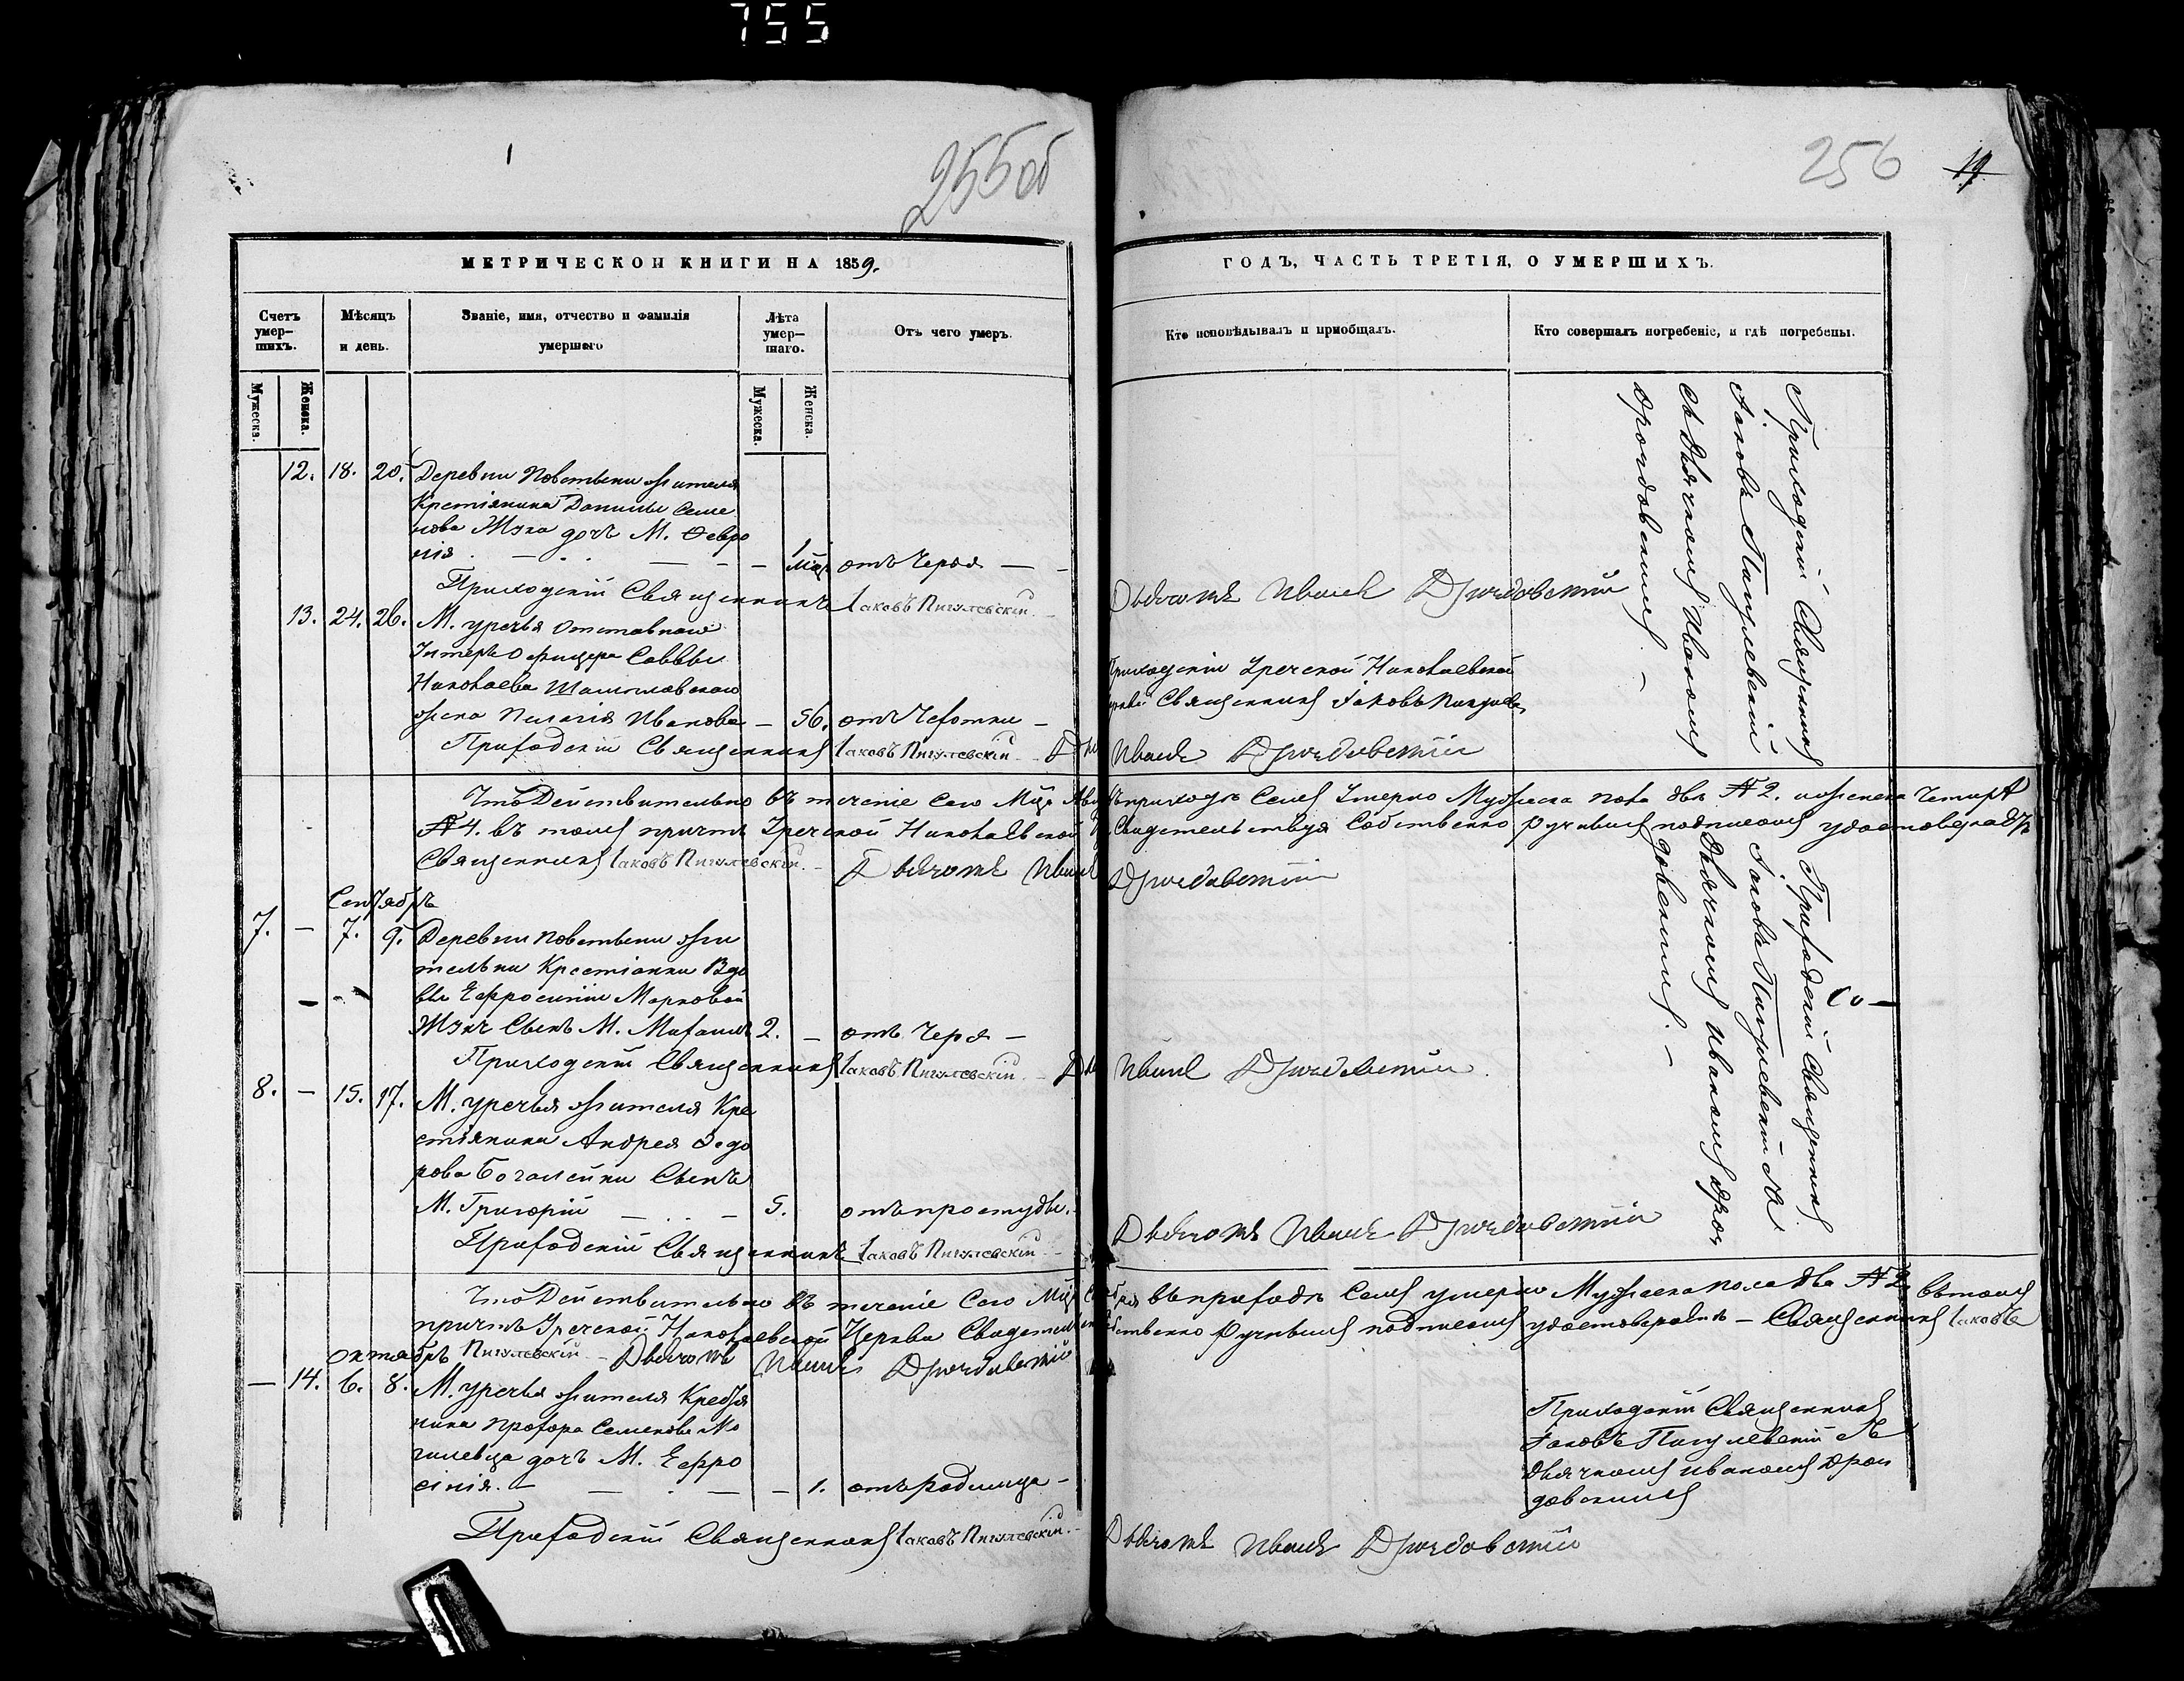 755
255 об
256
19
МЕТРИЧЕСКОЙ КНИГИ НА 1859.
ГОДЪ, ЧАСТЬ ТРЕТІЯ, О УМЕРШИХЪ.
Счетъ умер-
шихъ.
Мужеска.
Женска.
Мѣсяцъ
и день.
Званіе, имя, отчество и фамилія
умершаго
Лѣта
умер-
шаго.
Мужеска.
Женска.
Отъ чего умеръ.
Кто исповѣдывалъ и пріобщалъ.
Кто совершалъ погребеніе, и гдѣ погребены.
12. 18. 20. Деревни Повстыни жителя
Крестіянина Данилы Семе
нова Жука дочь М. Февро
нія. — 1 мѣс. отъ Чероя —
Приходскій Священникъ Іаковъ Пигулевскій
Дьячокъ Иванъ Дроздовскій
Приходскій Священникъ
Іаковъ Пигулевскій
съ Дьячкомъ Иваномъ
Дроздовскимъ. —
13. 24. 26. М. Уречья Отставнаго
Унтеръ Офицера Саввы
Николаева
жена Пелагія Иванова — 56. отъ Чехотки —
Приходскій Уречской Николаевской
Священникъ Іаковъ
Приходскій Священникъ Іаковъ Пигулевскій
Иванъ Дроздовскій
Что Действительно въ теченіе Сего Мца
въ приходѣ Семъ Умерло Мужеска пола два № 2. и женска Четыре
№ 4. въ томъ причтъ Уречской Николаевской
Свидетельствуя Собственно ручнымъ подписомъ удостоверяетъ
Священникъ Іаковъ Пигулевскій. — Дьячокъ Иванъ
Дроздовскій
Сентябрь
7. — 7. 9. Деревни Повстыни жи
тельки Крестіянки Вдо
вы Ефросиніи Марковой
Жукъ Сынъ М. Михаилъ 2. — отъ Чероя —
Приходскій Священникъ Іаковъ Пигулевскій. —
Иванъ Дроздовскій
Приходскій Священникъ
Іаковъ Пигулевскій
Дьячкомъ Иваномъ Дроз
довскимъ. —
Со —
8. — 15. 17. М. Уречья жителя Кре
стіянина Андрея Федо
рова Сынъ
М. Григорій — 5. отъ простуды.
Приходскій Священникъ Іаковъ Пигулевскій
Дьячокъ Иванъ Дроздовскій
Что Действительно въ теченіе Сего Мца
въ приходѣ Семъ умерло Мужеска пола два № 2. въ томъ
причтъ Уречской Николаевской Церкви
ручнымъ подписомъ удостоверяетъ — Священникъ Іаковъ
Пигулевскій — Дьячокъ Иванъ Дроздовскій
Октябрь
— 14. 6. 8. М. Уречья жителя Крестья
нина Прохора Семенова Мо
гилевца дочь М. Ефро
синія. — 1. отъ родимца —
Приходскій Священникъ
Іаковъ Пигулевскій съ
Дьячкомъ Иваномъ Дроз
довскимъ
Приходскій Священникъ Іаковъ Пигулевскій. —
Дьячокъ Иванъ Дроздовскій